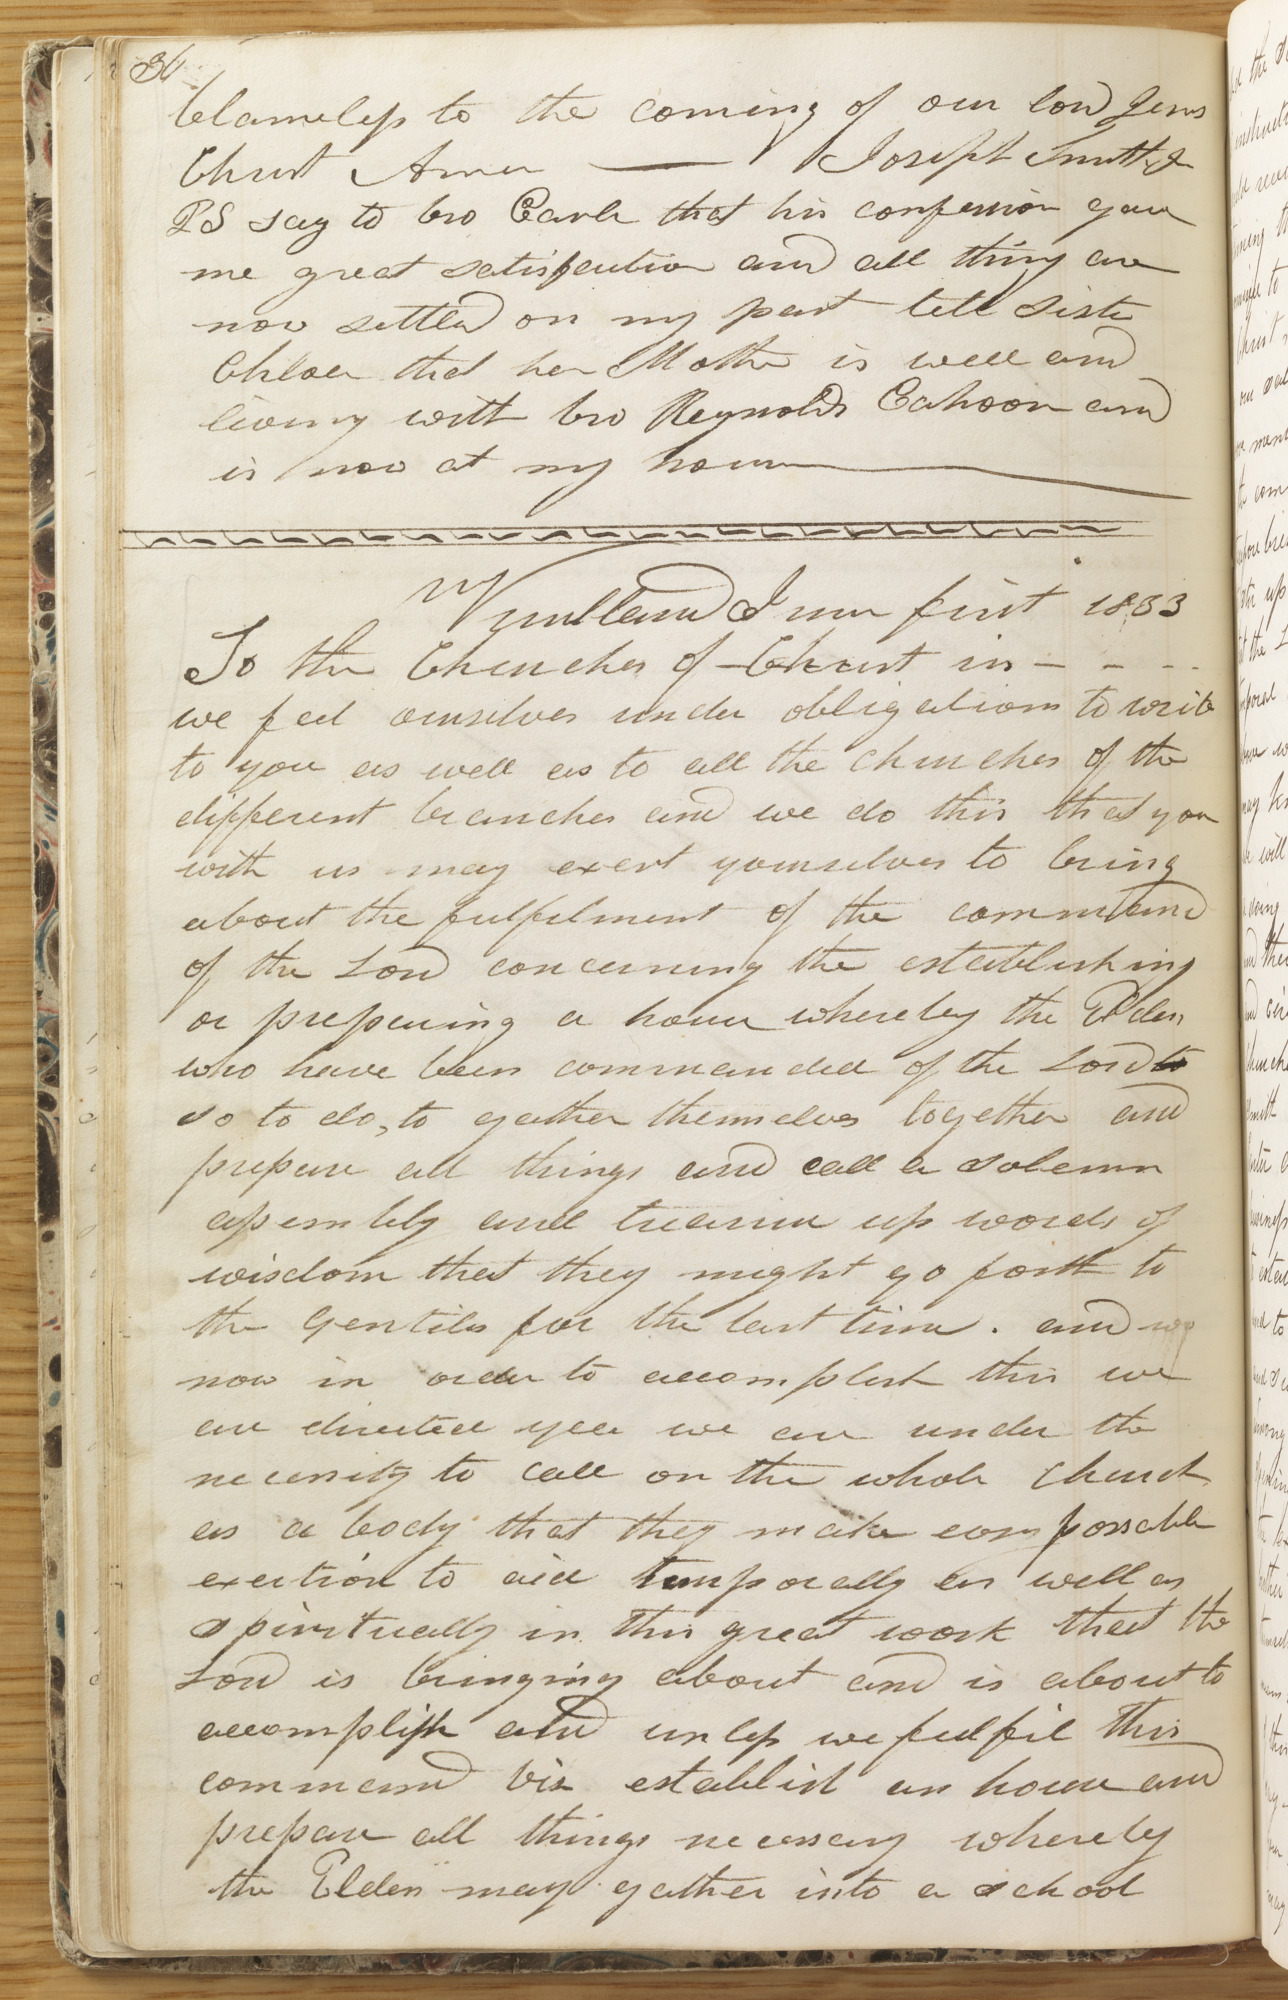 36
blameless to the coming of our lord Jesus
Christ Amen — Joseph Smith Jr
PS say to bro Carle that his confession gave
me great satisfaction and all thing are
now settled on my part tell Sister
Chloe that her Mother is well and
living with bro Reynolds Cahoon and
is now at my house
Kirtland June first 1833
To the Churches of Christ in – – – –
we feel ourselves under obligations to write
to you as well as to all the churches of the
different branches and we do this that you
with us may exert yourselves to bring
about the fulfilment of the command
of the Lord concerning the establishing
or prepairing a house whereby the Elders
who have been commanded of the Lord to
so to do, to gather themselves together and
prepare all things and call a solemn
assembly and treasure up words of
wisdom that they might go forth to
the Gentiles for the last time. and
now in order to accomplish this we
are directed yea we are under the
necessity to call on the whole Church
as a body that they make evry possable
exertion to aid temporally as well as
spiritually in this great work that the
Lord is bringing about and is about to
accomplish and unless we fulfil this
command viz establish an house and
prepare all things necessary whereby
the Elders may gather into a school